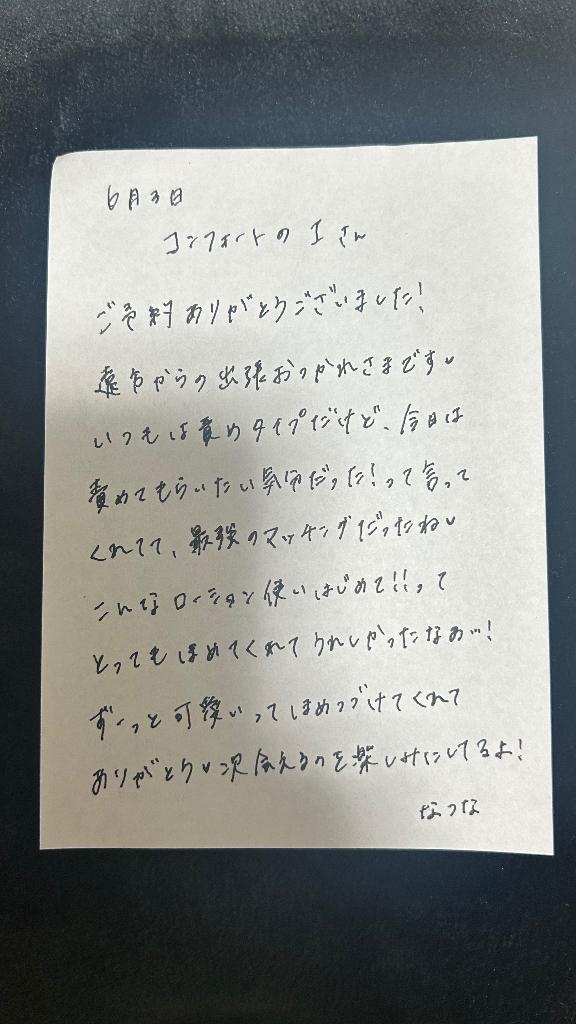 6月3日
コンフォートの Iさん
ご予約ありがとうございました!
遠方からの出張おつかれさまです♥
いつもは責めタイプだけど、今日は
責めてもらいたい気分だった!って言って
くれてて、最強のマッチングだったね♥
こんなローション使いはじめて!!って
とってもほめてくれてうれしかったなぁ…!
ずーっと可愛いってほめつづけてくれて
ありがとう♥次会えるのを楽しみにしてるよ!
なつな